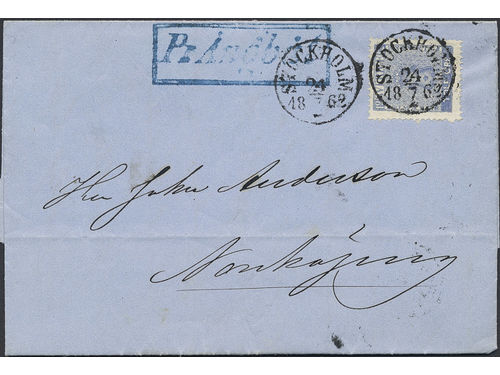 Pr Ångbåt
STOCKHOLM
24
18 7 62
STOCKHOLM
24
18 7 62
2
Herr John Anderson
Norrköping